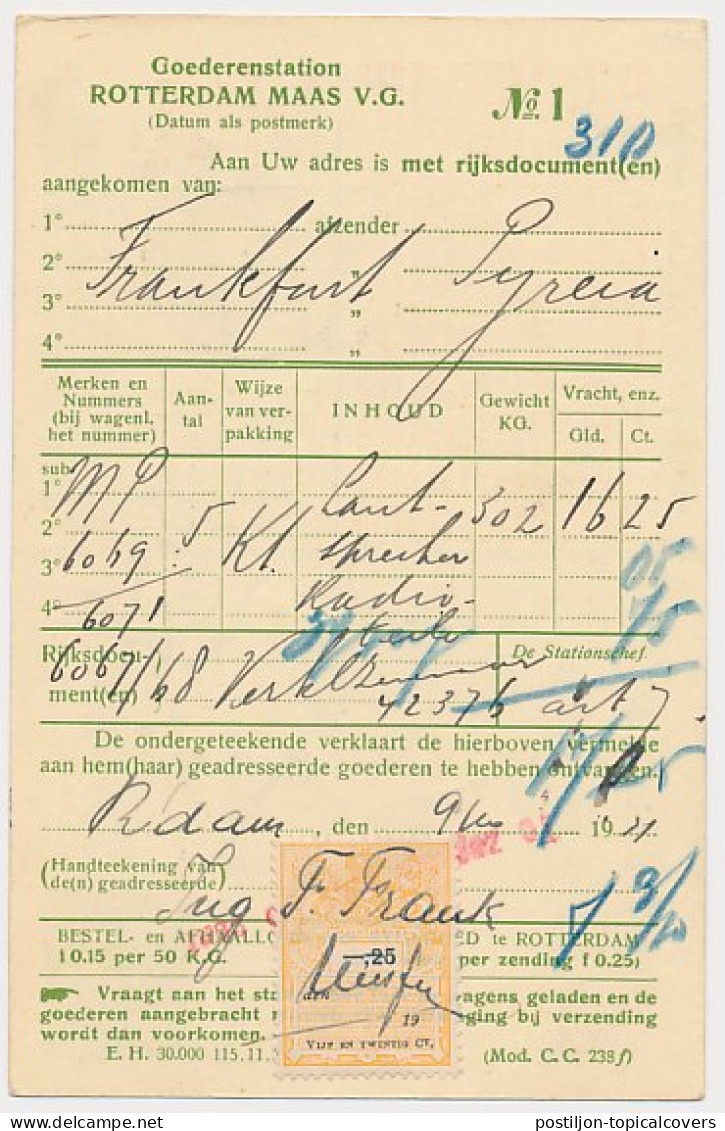 Goederenstation
ROTTERDAM MAAS V.G.
(Datum als postmerk)
No. 1
310
Aan Uw adres is met rijksdocument(en)
aangekomen van:
1° afzender
2° „
Frankfurt Pyreia
3° „
4° „
Merken en Nummers (bij wagenl. het nummer)
Aan-tal
Wijze van ver-pakking
INHOUD
Gewicht KG.
Vracht, enz.
Gld. Ct.
sub.
1° MP Laut- 302 16 25
2° 5 Kt. sprecher
3° 6069 Radio-
4° 6071 teile
05
Rijksdocu-
ment(en)
6067/68
De Stationschef.
42376 art 7
De ondergeteekende verklaart de hierboven vermelde
aan hem(haar) geadresseerde goederen te hebben ontvangen.
R'dam, den 9 19
(Handteekening van
de(n) geadresseerde)
F. Frank
,25
BESTEL- en te ROTTERDAM
f 0.15 per 50 K.G. per zending f 0.25)
Vraagt aan het wagens geladen en de
goederen aangebracht bij verzending
wordt dan voorkomen.
19
VIJF EN TWINTIG CT.
E. H. 30.000 115.11. (Mod. C. C. 238f)
postiljon-topicalcovers